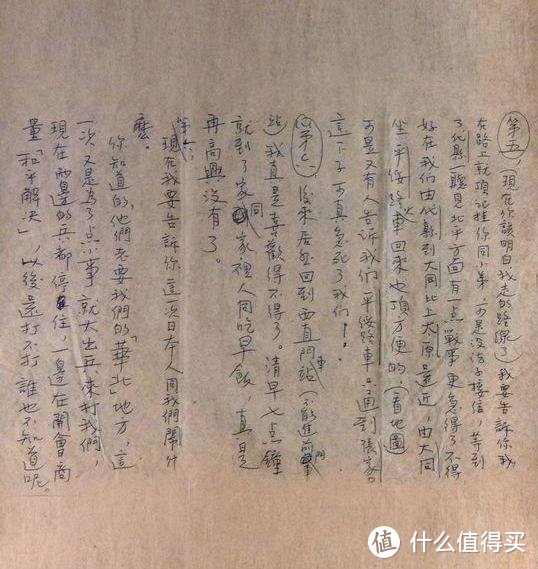 第五，（現在你該明白我走的路線了）我要告訴你我
在路上就頂記挂你同小弟，可是沒法子接信，等到
了代縣一聽見北平方面有一點戰事，更急得了不得
好在我們由代縣到大同比上太原還近，由大同
坐平綏路火車回來也頂方便的，（看地圖
可是又有人告訴我們平綏路車只通到張家口
這下子可真急死了我們！
（第六，後來居然回到西直門車站（不能進前門車
站）我真是喜歡得不得了。清早七點鐘
就到了家，同家裡人同吃早飯，真是
再高興沒有了。
第六、現在我要告訴你這一次日本人同我們鬧什
麼。
你知道的他們老要我們的「華北」地方，這
一次又是為了点小事就大出兵來打我們，
現在兩邊的兵都停住，一邊在開會商
量「和平解決」，以後還打不打誰也不知道呢。
值 什么值得买